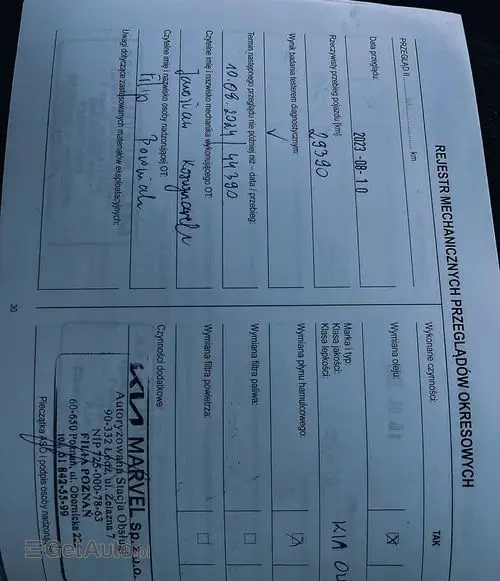 REJESTR MECHANICZNYCH PRZEGLĄDÓW OKRESOWYCH
PRZEGLĄD II ................ km
Data przeglądu:
2023-08-10
Rzeczywisty przebieg pojazdu [km]:
29390
Wynik badania testerem diagnostycznym:
Termin następnego przeglądu nie później niż - data / przebieg:
10.08.2024 / 44390
Czytelne imię i nazwisko mechanika wykonującego OT:
Czytelne imię i nazwisko osoby nadzorującej OT:
Filip
Uwagi dotyczące zastosowanych materiałów eksploatacyjnych:
30
Wykonane czynności:
TAK
Wymiana oleju:
Marka i typ:
KIA
Klasa jakości:
Klasa lepkości:
Wymiana płynu hamulcowego:
Wymiana filtra paliwa:
Wymiana filtra powietrza:
Czynności dodatkowe:
KIA MARVEL Sp. z o.o.
Autoryzowana Stacja Obsługi
90-332 Łódź, ul. Żelazna 7
NIP 725-000-78-63
FILIA POZNAŃ
60-650 Poznań, ul. Obornicka
61 842-55-99
Pieczątka ASO i podpis osoby
GetAuto